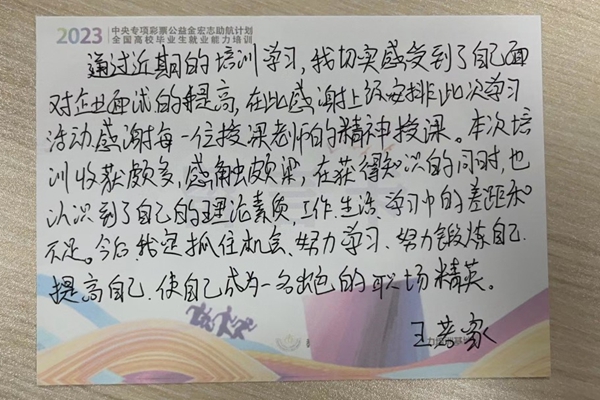 2023 中央专项彩票公益金宏志助航计划
全国高校毕业生就业能力培训
通过近期的培训学习,我切实感受到了自己面
对企业面试的提高,在此感谢上级安排此次学习
活动感谢每一位授课老师的精神授课。本次培
训收获颇多,感触颇深,在获得知识的同时,也
认识到了自己的理论素质,工作.生活.学习中的差距和
不足。今后我定抓住机会、努力学习、努力锻炼自己.
提高自己.使自己成为一名出色的职场精英。
王若家